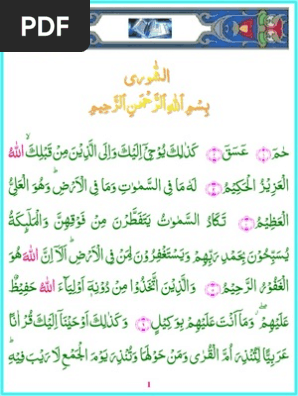 PDF
الشُّورٰى
بِسْمِ ٱللَّهِ ٱلرَّحْمَٰنِ ٱلرَّحِيمِ
حٰمٓ ۝١ عٓسٓقٓ ۝٢ كَذٰلِكَ يُوْحِيْۤ اِلَيْكَ وَاِلَى الَّذِيْنَ مِنْ قَبْلِكَ ۙ اللّٰهُ
الْعَزِيْزُ الْحَكِيْمُ ۝٣ لَهٗ مَا فِى السَّمٰوٰتِ وَمَا فِى الْاَرْضِ ؕ وَهُوَ الْعَلِىُّ
الْعَظِيْمُ ۝٤ تَكَادُ السَّمٰوٰتُ يَتَفَطَّرْنَ مِنْ فَوْقِهِنَّ وَالْمَلٰٓئِكَةُ
يُسَبِّحُوْنَ بِحَمْدِ رَبِّهِمْ وَيَسْتَغْفِرُوْنَ لِمَنْ فِى الْاَرْضِ ؕ اَلَاۤ اِنَّ اللّٰهَ هُوَ
الْغَفُوْرُ الرَّحِيْمُ ۝٥ وَالَّذِيْنَ اتَّخَذُوْا مِنْ دُوْنِهٖۤ اَوْلِيَآءَ اللّٰهُ حَفِيْظٌ
عَلَيْهِمْ ۖ وَمَاۤ اَنْتَ عَلَيْهِمْ بِوَكِيْلٍ ۝٦ وَكَذٰلِكَ اَوْحَيْنَاۤ اِلَيْكَ قُرْاٰنًا
عَرَبِيًّا لِّتُنْذِرَ اُمَّ الْقُرٰى وَمَنْ حَوْلَهَا وَتُنْذِرَ يَوْمَ الْجَمْعِ لَا رَيْبَ فِيْهِ ؕ
1